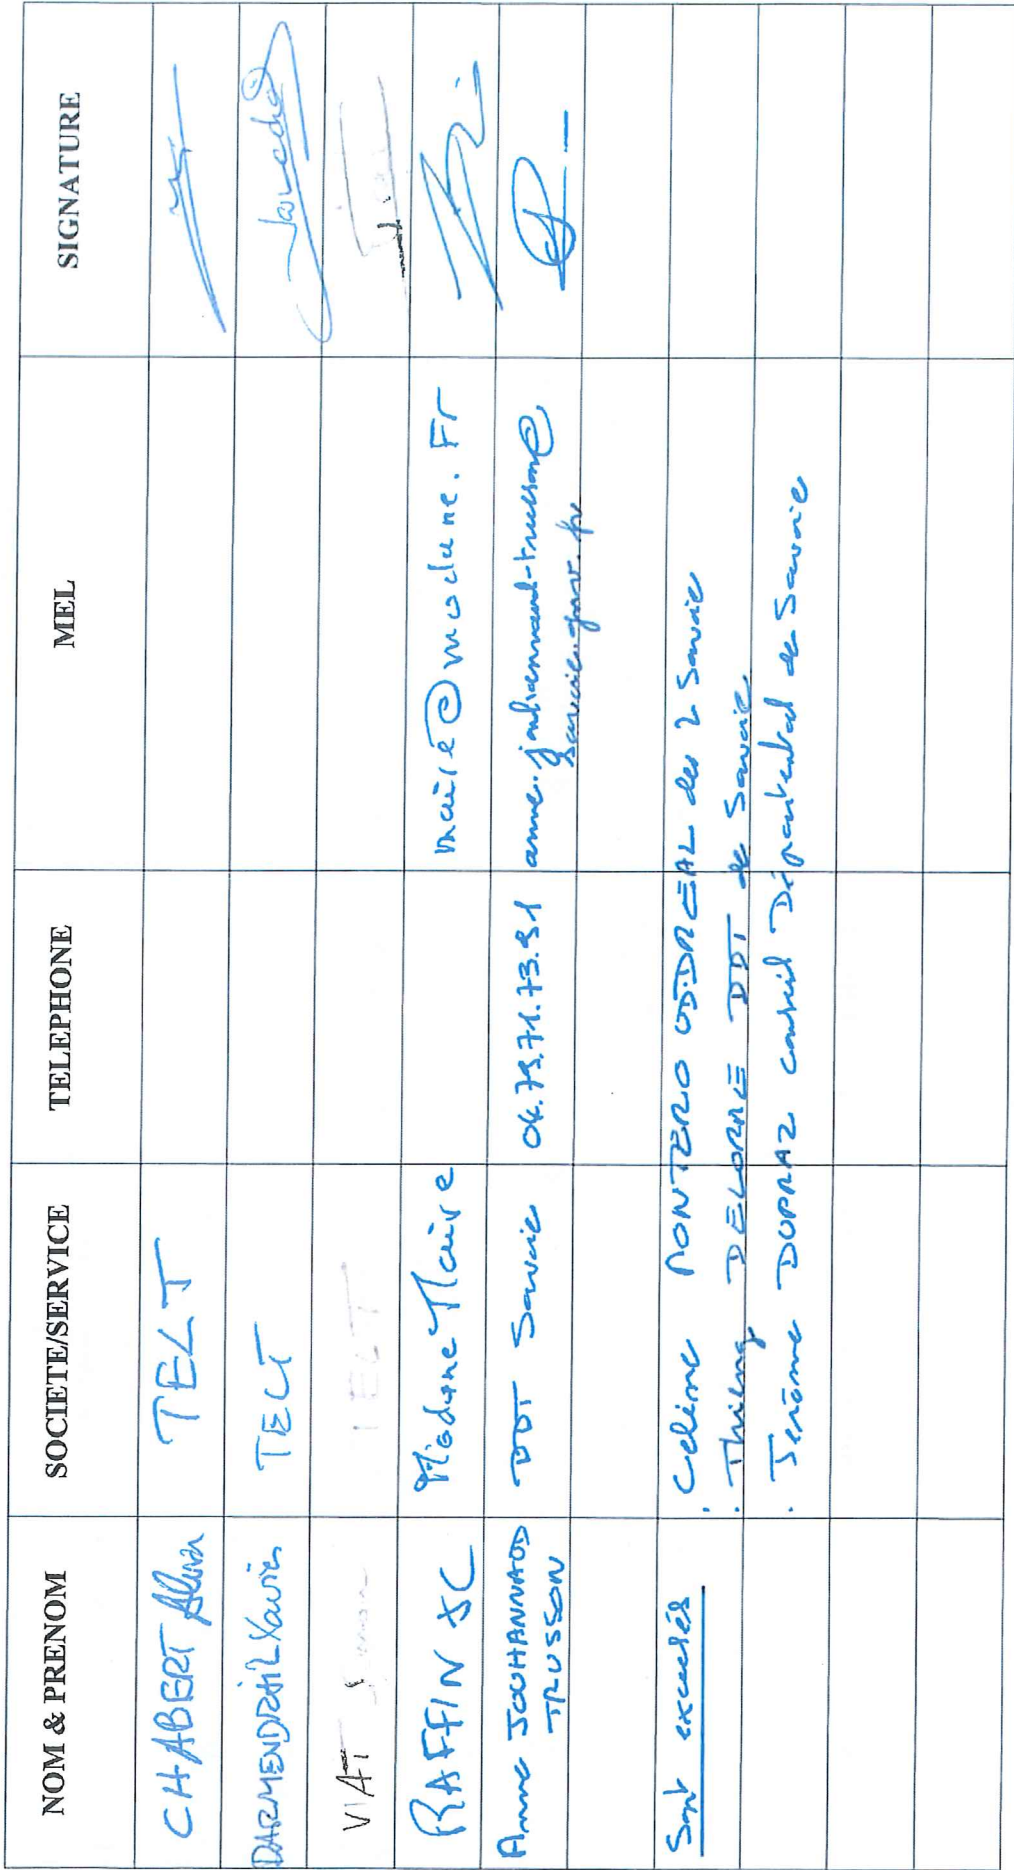 NOM & PRENOM SOCIETE/SERVICE TELEPHONE MEL SIGNATURE
CHABERT TELT
DARMENDRAIL Xavier TELT
VIAT Simon TELT
RAFFIN JC Modane Maire maire@modane.Fr
Anne JOUHANNAUD DDT Savoie 04.79.71.73.91 anne.jouhannaud-trusson@
TRUSSON savoie.gouv.fr
Sont excusés : Celine MONTERO UD.DREAL des 2 Savoie
. Thierry DELORME DDT de Savoie
. Jerôme DUPRAZ conseil Départental de Savoie